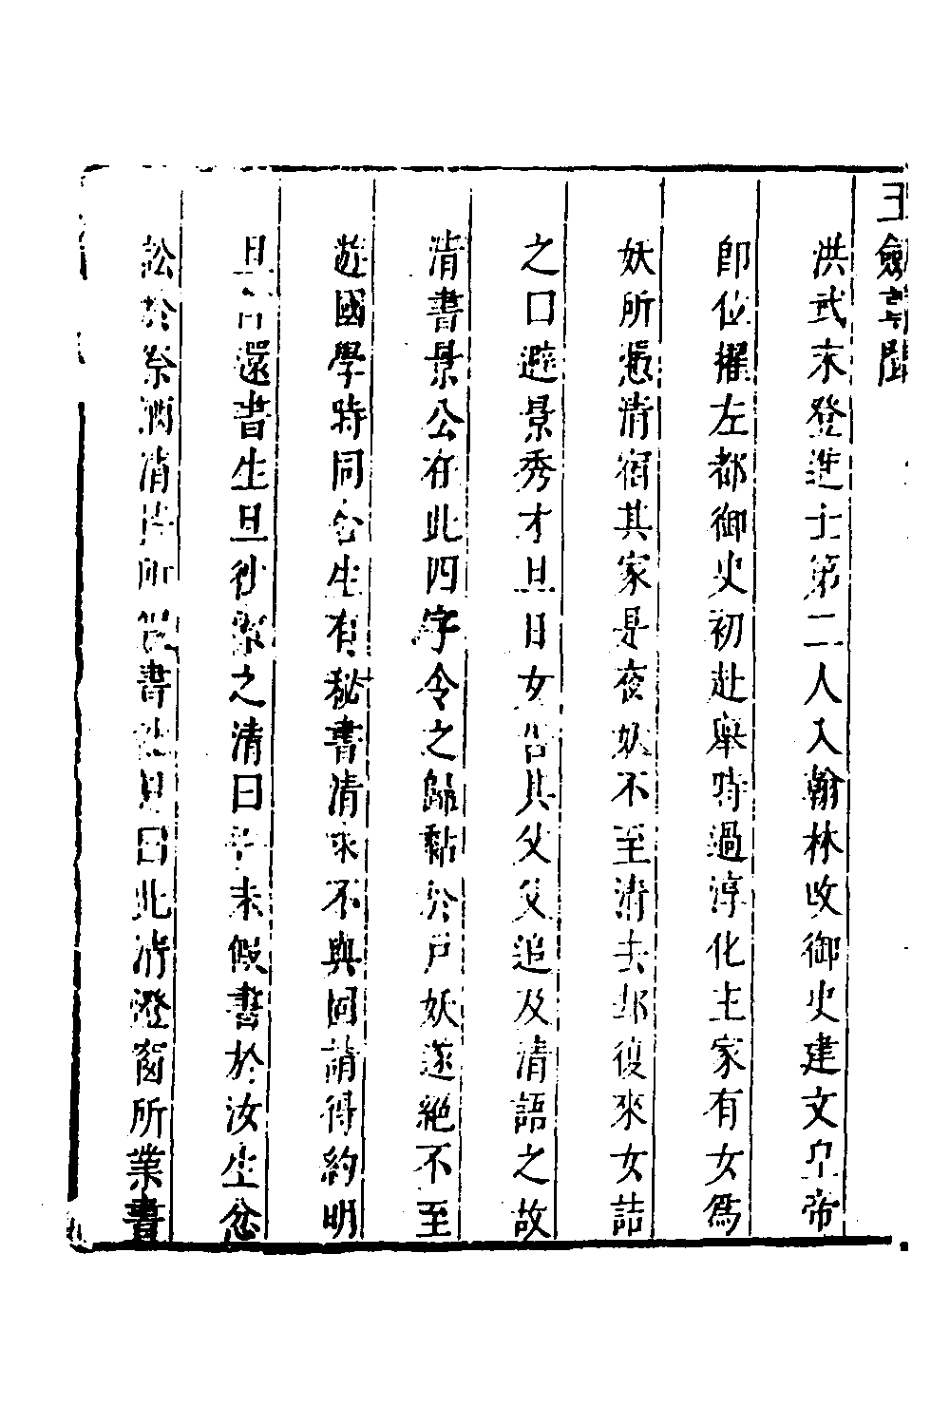 洪武末登進士第二人入翰林改御史建文皇帝
卽位擢左都御史初赴舉時過淳化主家有女爲
妖所慿清宿其家是夜妖不至清去卻復來女詰
之曰避景秀才旦日女告其父父追及清語之故
清書景公在此四字令之歸黏於戶妖遂絕不至
遊國學時同舍生有秘書清求不與固請得約明
旦卽還書生旦往索之清曰吾未假書於汝生忿
訟於祭酒清持所假書往見曰此清澄窗所業書